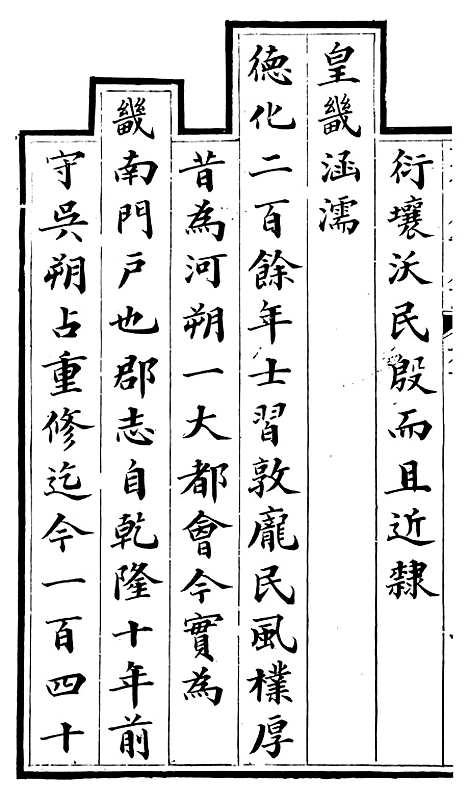 衍壤沃民殷而且近隸
皇畿涵濡
德化二百餘年士習敦龐民風樸厚
昔為河朔一大都會今實為
畿南門戶也郡志自乾隆十年前
守吳朔占重修迄今一百四十